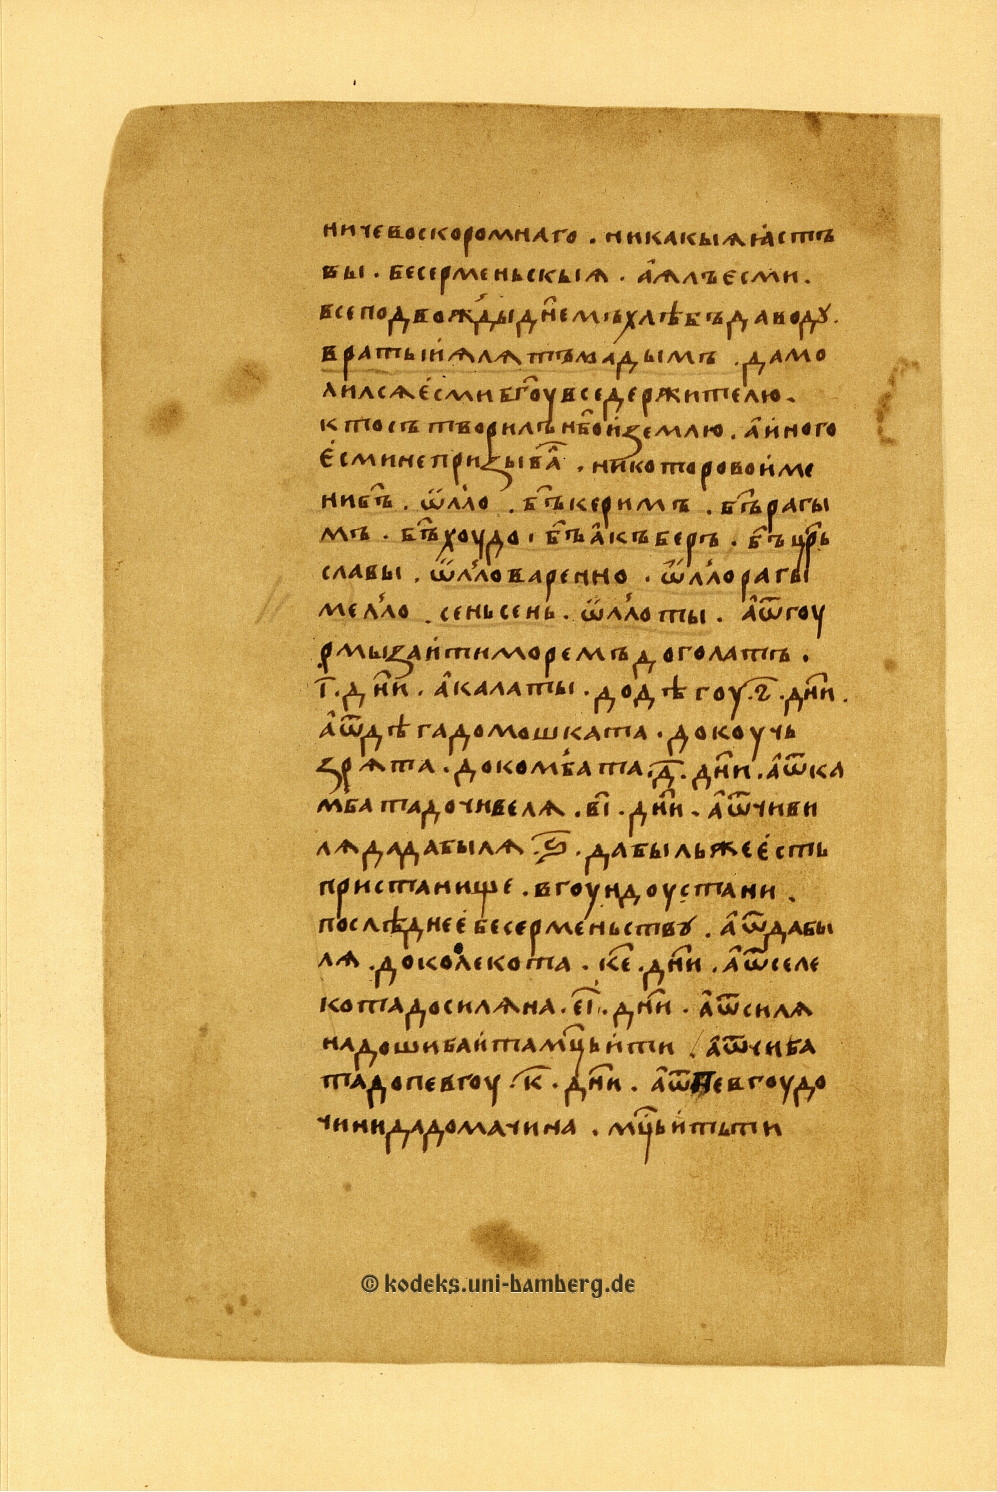 ничевоскоромнаго . никакыꙗꙗ́стъ
вы . бесерменьскыꙗ . а҆ѧлъесми .
всеподвожды́дн҃емъхлѣбъдаводꙋ .
вратыйѧлѧтъвадымъ . дамо
лилсѧе́смибг҃оувседержителю .
ктосътворилънб҃ойземлю . а҆йного
е́сминепризыва҆л . никоторовойме
нибг҃ъ . ѿлло . бг҃ъкеримъ . бг҃ърагы
мъ . бг҃ъхоудо . бг҃ъа҆къберъ . бг҃ъцр҃ь
славы . ѿлловаренно . ѿллорагы
мелло . сеньсень . ѿллоты . а҆ѿгоу
рмызайтиморемъдоголатъ .
і҃ . дн҃и . а҆калаты . додѣгоу . ѕ҃ . дн҃и .
а҆ѿдѣгадомошката . докоучь
зрѧта . докомбата . д҃ . дн҃и . а҆ѿка
мбатадочивелѧ . ві҃ . дн҃и . а҆ѿчиви
лѧдадабылѧ . ѕ҃ . дабыльжее́сть
пристанище . вгоундоустани .
послѣднее́бесерменьствꙋ . а҆ѿдабы
лѧ . доколекота . к҃е . дн҃и . а҆ѿселе
котадосилѧна . е҃і . дн҃и . а҆ѿсилѧ
надошибайтамц҃ьйти . а҆ѿчиба
тадопевгоу . к҃ . дн҃и . а҆ѿпевгоудо
чинидадомачина . мц҃ьйтьти
© kodeks.uni-bamberg.de